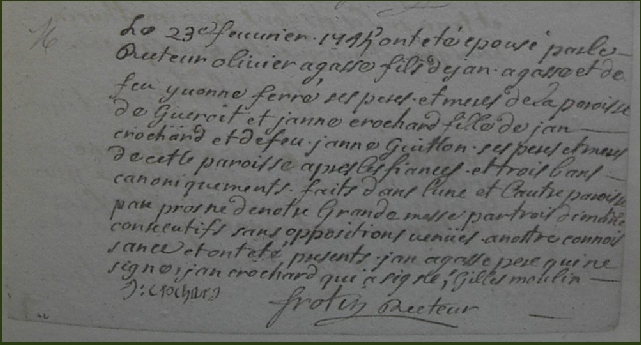 Le 23e feuvrier ont eté epousé par le
Recteur olivier agasse fils de jan agasse et de
feu yvonne ferré ses peres et meres de la paroisse
de Guercit et janne crochard fille de jan
crochard et defeu janne Guitton ses peres et meres
de cette paroisse apres les fiances et trois bans
canoniquements faits dans lune et lautre paroisse
par prosne denotre Grande messe par trois dimanche
consecutifs sans oppositions venües anottre connois
sance et ont eté presents jan agasse pere qui ne
signe, jan crochard qui a signé, Gilles moulin
J: crochard
frotin Recteur